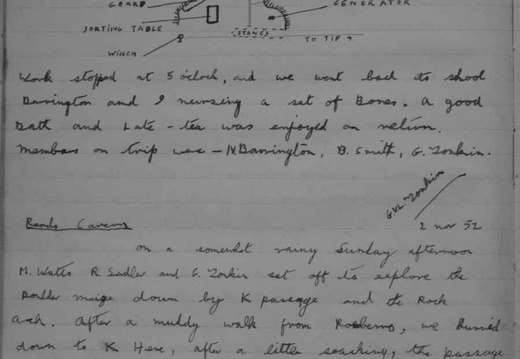 GEARS
GENERATOR
SORTING TABLE
STONES
TO TIP
WINCH
Work stopped at 5 o'clock, and we went back to school
Barrington and I nursing a set of Bones. A good
Bath and Late-tea was enjoyed on return.
Members on trip were - N Barrington, B. Smith, G. Tonkin.
GVL Tonkin
2 Nov 52
Reads Cavern
On a somewhat rainy Sunday afternoon
M. Wates R Sadler and G. Tonkin set off to explore the
Boulder maize down by K passage and the Rock
Arch. After a muddy walk from, we hurried
down to K. Here, after a little searching, the passage